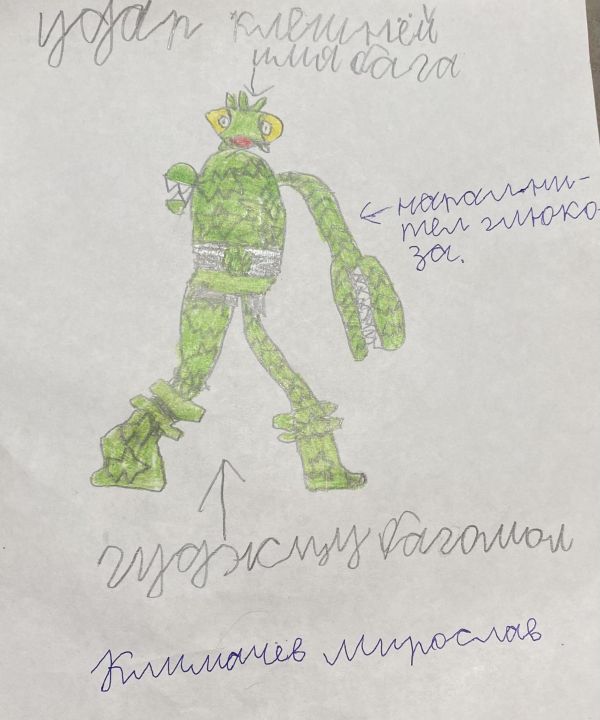 удар клешнёй
имя бага
напални-
тел глюко-
за.
гуджицу багомол
Климачёв мирослав